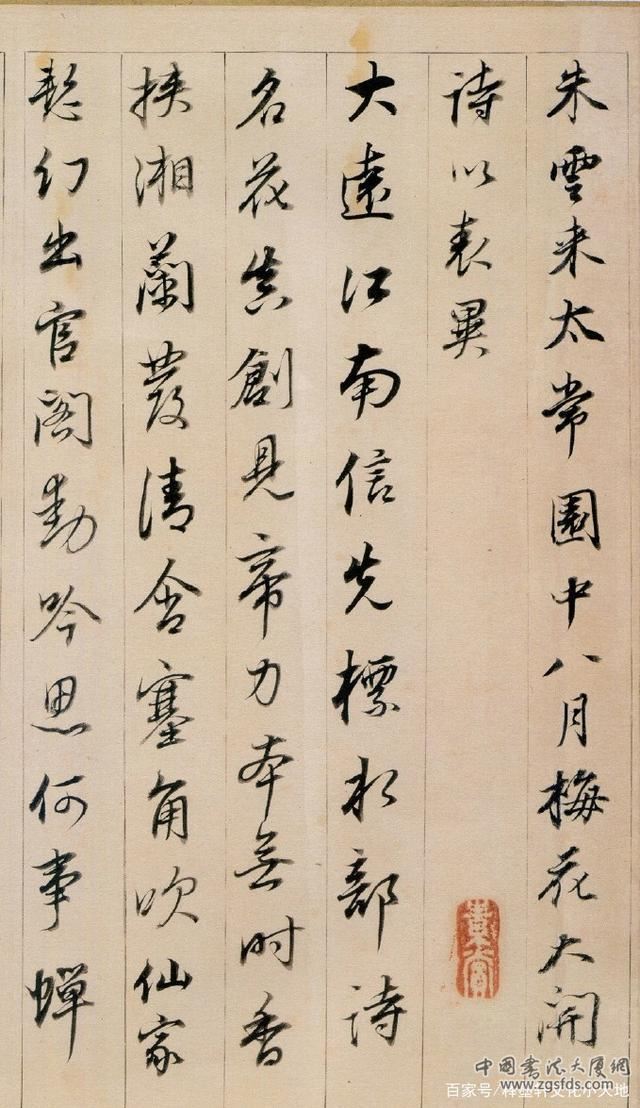 朱雲来太常園中八月梅花大開
詩以表異
大遠江南信先標水部詩
名花真創見帝力本無时香
挟湘蘭發清含塞角吹仙家
愁幻出官閣動吟思何事蟬
中国书法大厦网
www.zgsfds.com
百家号/释墨轩文化小天地